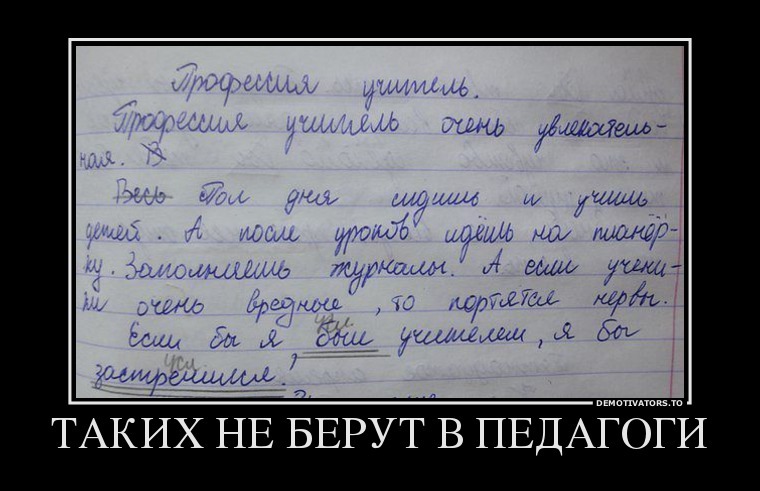 Профессия учитель.
Профессия учитель очень увлекатель-
ная. В
Весь Пол дня сидишь и учишь
детей. А после уроков идёшь на планёр-
ку. Заполняешь журналы. А если учени-
ки очень вредные, то портятся нервы.
усл.
Если бы я был учителем, я бы
усл.
застрелился!
DEMOTIVATORS.TO
ТАКИХ НЕ БЕРУТ В ПЕДАГОГИ